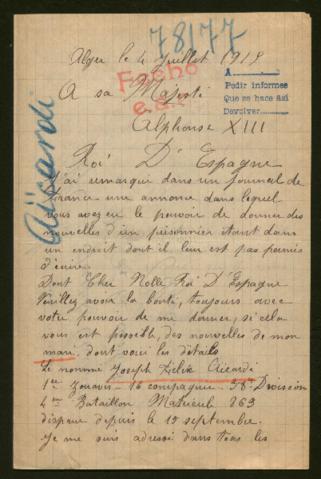 78/177
Alger le 4 Juillet 1918
Fecho
A
Pedir informes
Que se hace así
Devolver
A sa Majesté
Alphonse XIII
Roi D'Espagne
Aicardi
J'ai remarqué dans un Journal de
France une annonce dans lequel
vous avez eu le pouvoir de donner des
nouvelles d'un prisonnier étant dans
un endroit dont il leur est pas permis
d'écrire
Dont Cher Noble Roi D'Espagne
Veuillez avoir la bonté, toujours avec
votre pouvoir de me donner, si cela
vous est possible, des nouvelles de mon
mari, dont voici les détails
Le nommé Joseph Félix Aicardi
1er Zouaves 16 compagnie 38e Division
4me Bataillon Matricule 863
disparu depuis le 15 septembre.
Je me suis adressé dans tous les